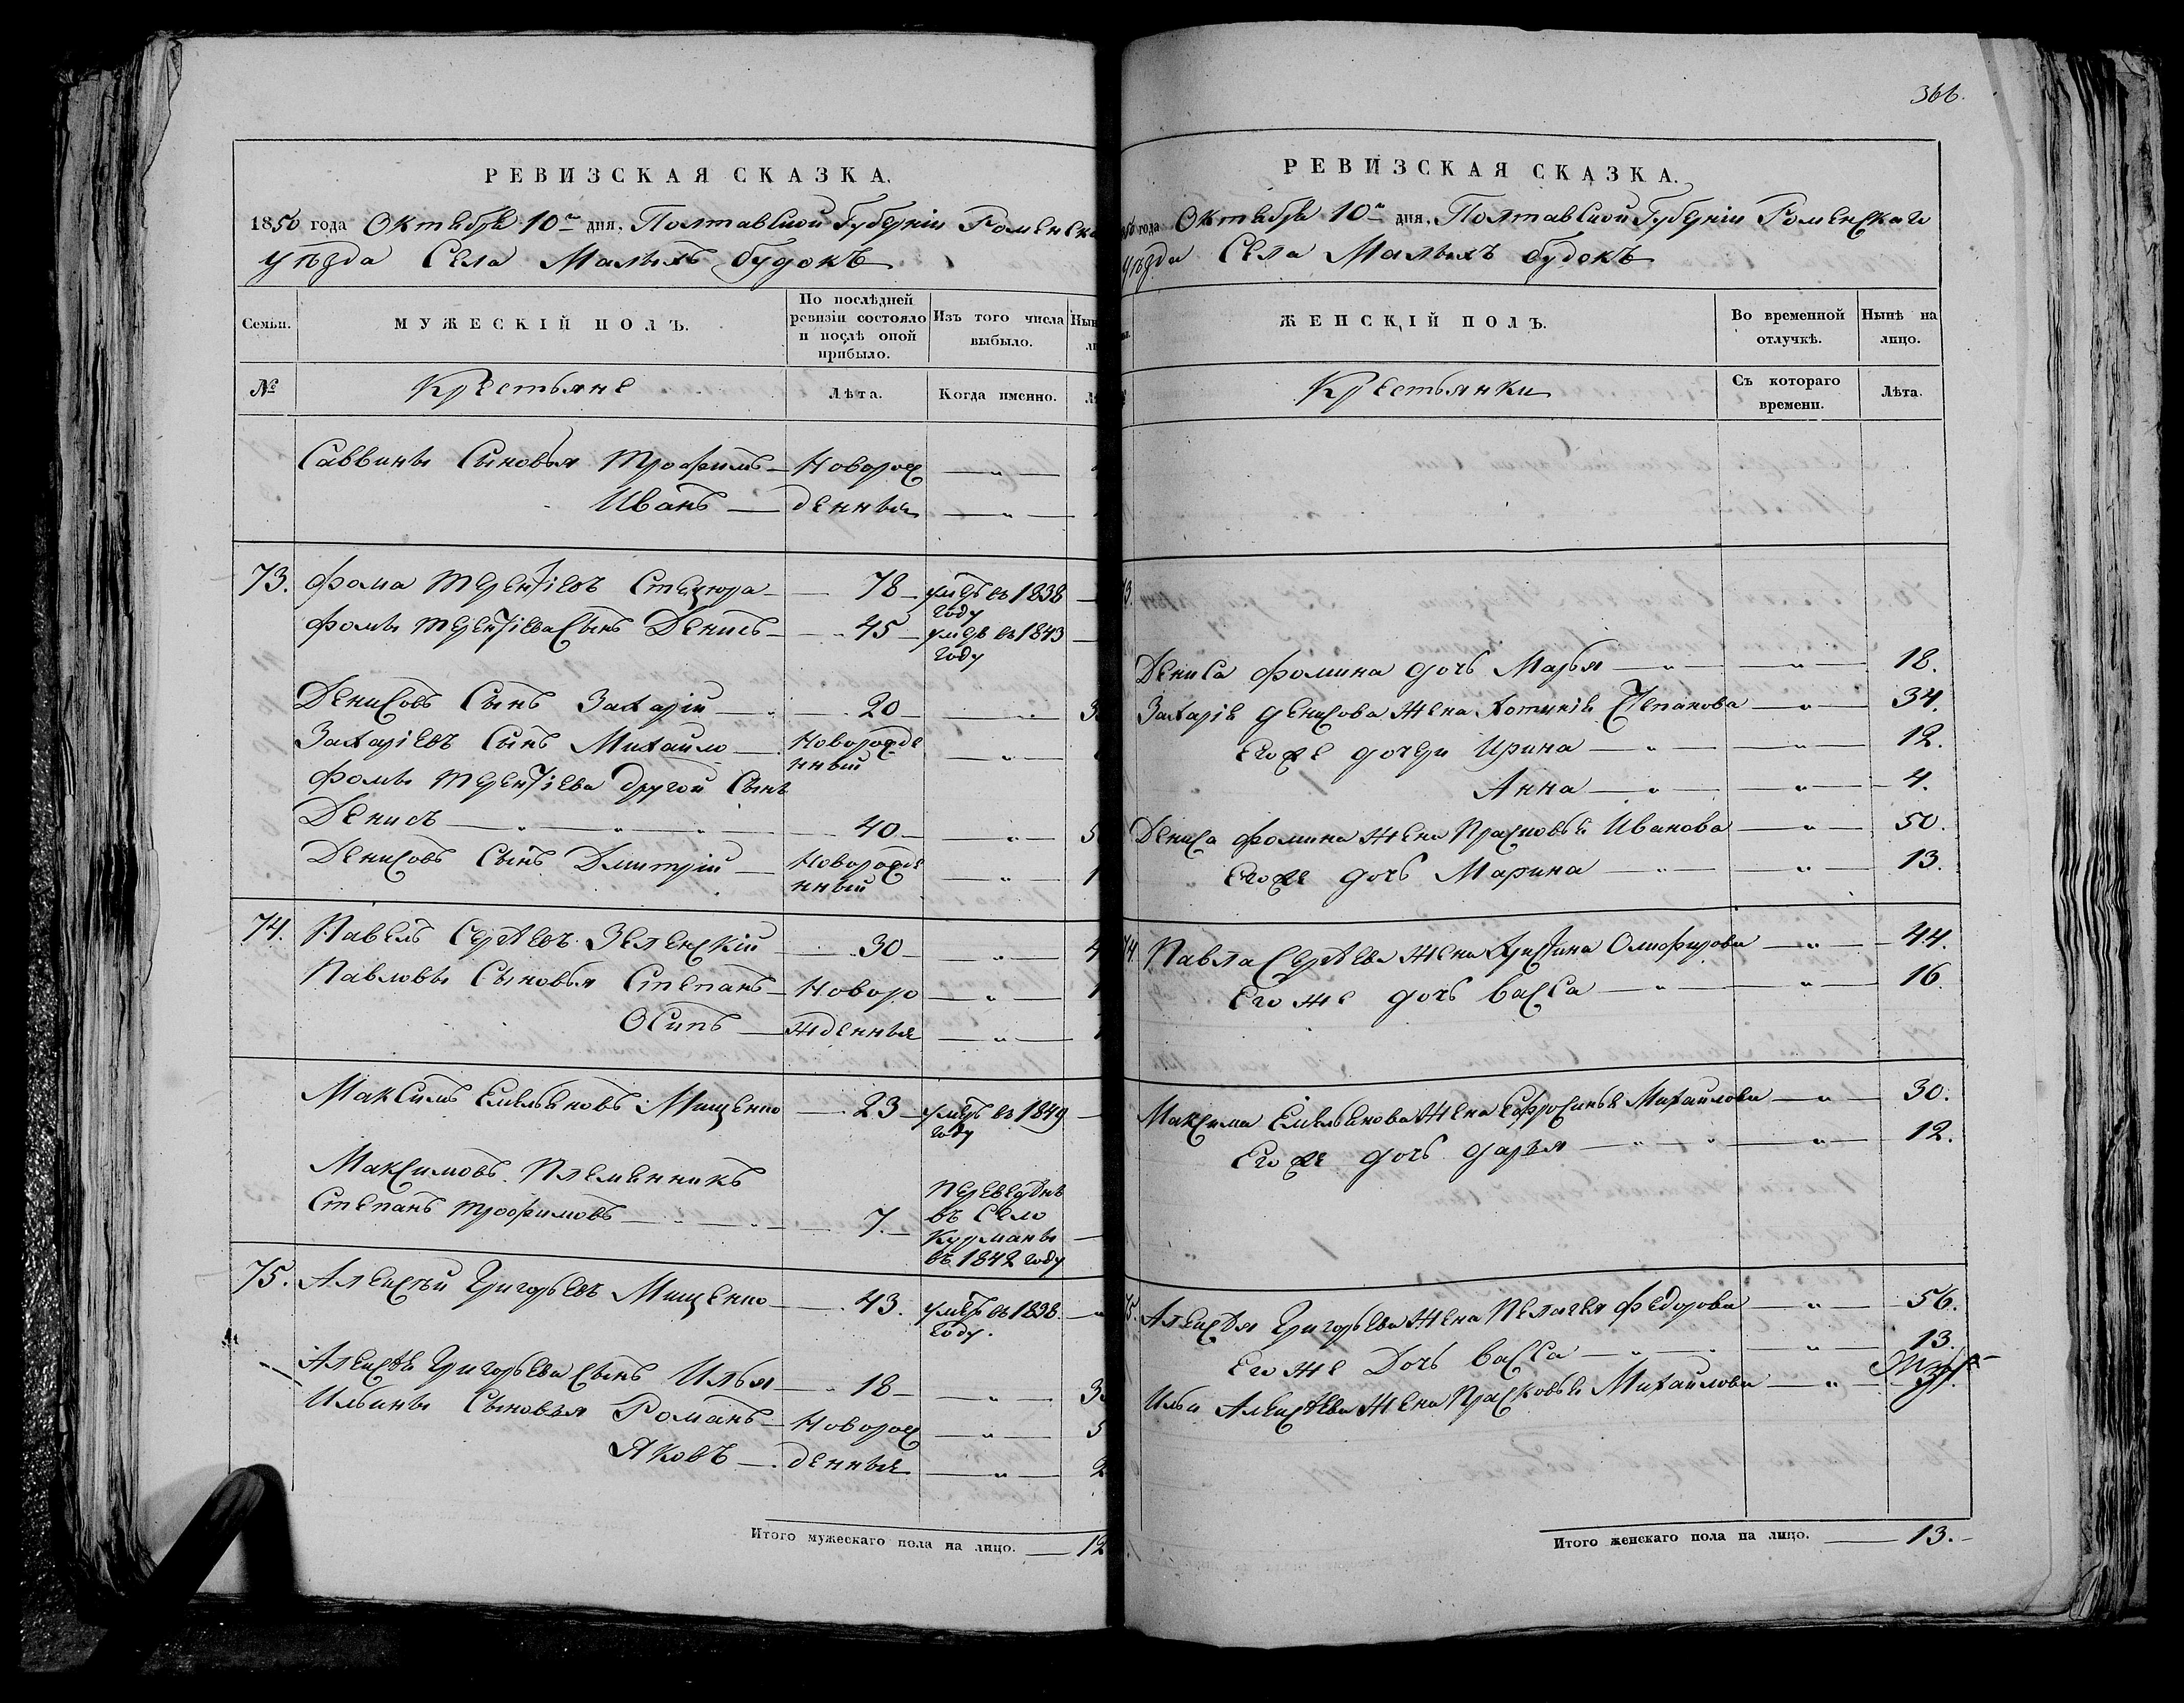 РЕВИЗСКАЯ СКАЗКА.
1850 года Октября 10го дня, Полтавской Губерніи Роменска
уѣзда Села Малыхъ будокъ
Семьи.
МУЖЕСКІЙ ПОЛЪ.
По послѣдней ревизіи состояло и послѣ оной прибыло.
Изъ того числа выбыло.
№
Крестьяне
Лѣта.
Когда именно.
Саввины Сыновья Трофимъ — Новорож
Иванъ — денныя
73. Фома Терентіевъ Стецюра — 78 — умеръ въ 1838 году
Фомы Терентіева Сынъ Денисъ — 45 — умеръ въ 1843 году
Денисовъ Сынъ Захарій — 20
Захаріевъ Сынъ Михайло — Новорожденный
Фомы Терентіева другой Сынъ
Денисъ — 40
Денисовъ Сынъ Дмитрій — Новорожденный
74. Павелъ Сергѣевъ Зеленскій — 30
Павловы Сыновья Степанъ — Новоро
Осипъ — жденныя
Максимъ Емельяновъ Мищенко — 23 — умеръ въ 1849 году
Максимовъ Племянникъ
Степанъ Трофимовъ — 7. — переведенъ въ Село Курманы въ 1842 году
75. Алексѣй Григорьевъ Мищенко — 43. умеръ въ 1838 году.
Алексѣя Григорьева Сынъ Илья — 18
Ильины Сыновья Романъ — Новорож
Яковъ — денныя
Итого мужескаго пола на лицо. — 12
366.
РЕВИЗСКАЯ СКАЗКА.
года Октября 10го дня, Полтавской Губерніи Роменскаго
уѣзда Села Малыхъ будокъ
ЖЕНСКІЙ ПОЛЪ.
Во временной отлучкѣ.
Нынѣ на лицо.
Крестьянки
Съ котораго времени.
Лѣта.
Дениса Фомина дочь Марья — 18.
Захарія Денисова жена Хотинія Степанова — 34.
Его же дочери Ирина — 12.
Анна — 4.
Дениса Фомина жена Прасковья Иванова — 50.
Его же дочь Марина — 13.
Павла Сергѣева жена Христина Олиферова — 44.
Его же дочь Васса — 16.
Максима Емельянова жена Ефросинья Михайлова — 30.
Его же дочь Дарья — 12.
Алексѣя Григорьева жена Пелагея Федорова — 56.
Его же Дочь Васса — 13.
Ильи Алексѣева жена Прасковья Михайлова
Итого женскаго пола на лицо. — 13.